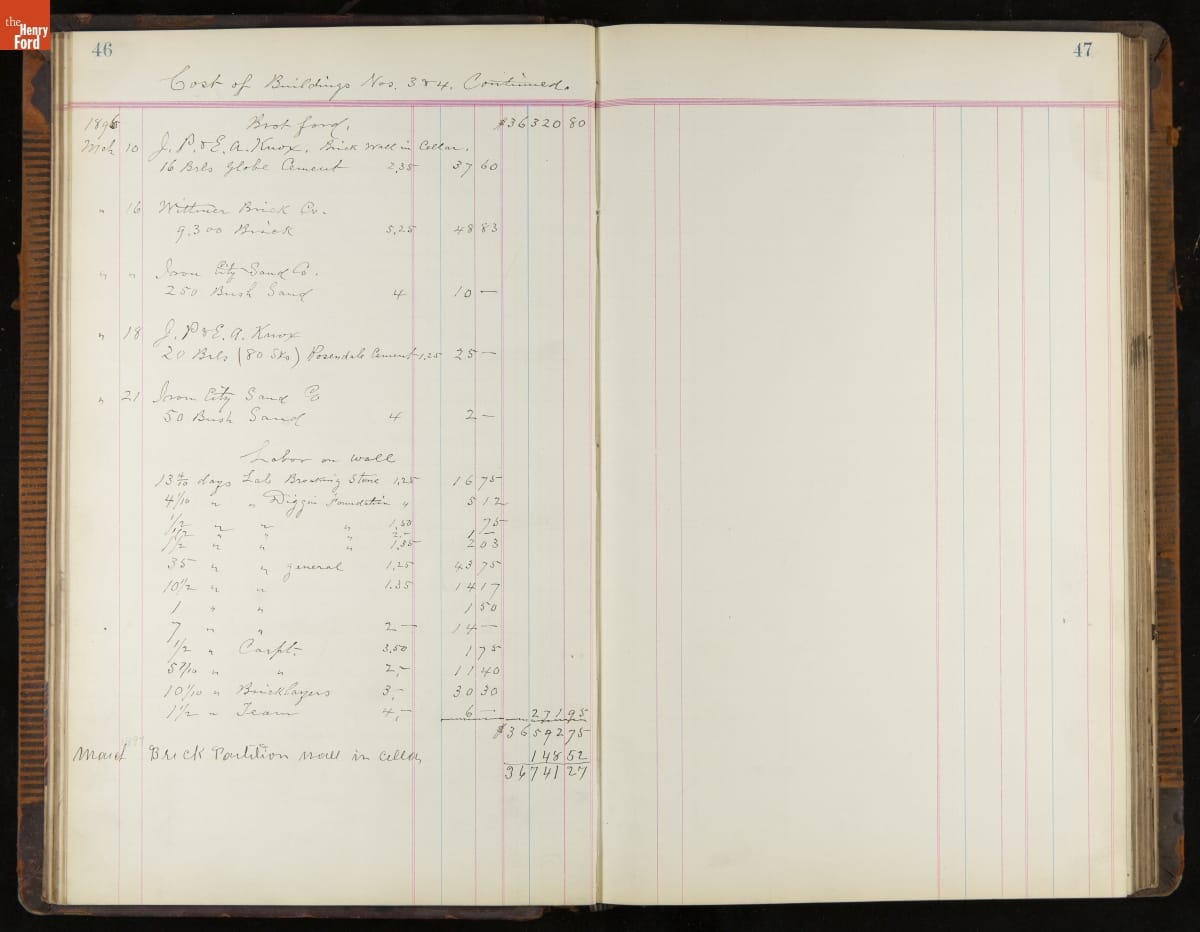 the Henry Ford
46
47
Cost of Buildings Nos. 3 & 4. Continued.
1896 Brot ford, $36320 80
Mch 10 J. P. & E. A. Knox. Brick Wall in Cellar.
16 Brls Globe Cement 2,35 37 60
" 16 Wittmer Brick Co.
9,300 Brick 5,25 48 83
" " Iron City Sand Co.
250 Bush Sand 4 10 —
" 18 J. P. & E. A. Knox
20 Brls (80 Sks) Rosendale Cement 1,25 25 —
" 21 Iron City Sand Co
50 Bush Sand 4 2 —
Labor on wall
13 4/10 days Lab Breaking Stone 1,25 16 75
4 1/10 " " Diggin Foundation " 5 12
1/2 " " " 1,50 75
1/2 " " " 2,— 1 —
1 1/2 " " " 1,35 2 03
35 " " general 1,25 43 75
10 1/2 " " 1.35 14 17
1 " " 1 50
7 " " 2 — 14 —
1/2 " Carpt. 3,50 1 75
5 7/10 " " 2,— 11 40
10 1/10 " Bricklayers 3,— 30 30
1 1/2 " Team 4,— 6 — 271 95
$36592 75
1897
March Brick Partition wall in cellar 148 52
36741 27